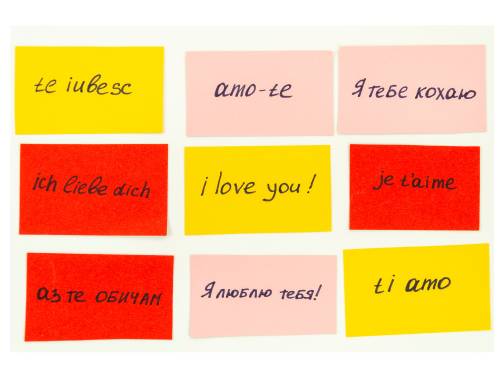 te iubesc
amo-te
Я тебе кохаю
ich liebe dich
i love you!
je t'aime
аз те обичам
Я люблю тебя!
ti amo